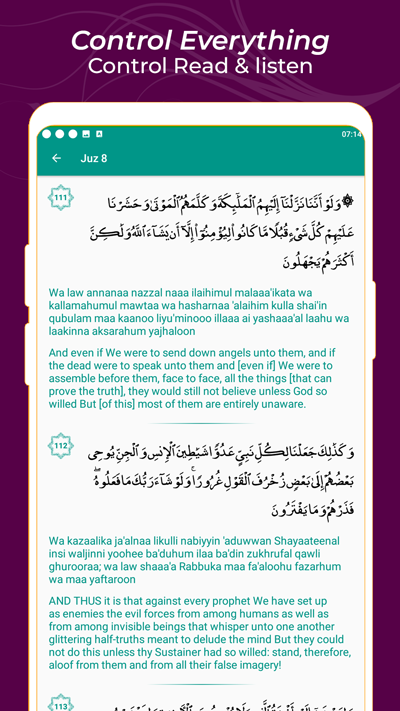 Control Everything
Control Read & listen
07:14
Juz 8
111
۞ وَلَوْ أَنَّنَا نَزَّلْنَآ إِلَيْهِمُ ٱلْمَلَٰٓئِكَةَ وَكَلَّمَهُمُ ٱلْمَوْتَىٰ وَحَشَرْنَا
عَلَيْهِمْ كُلَّ شَىْءٍ قُبُلًا مَّا كَانُوا۟ لِيُؤْمِنُوٓا۟ إِلَّآ أَن يَشَآءَ ٱللَّهُ وَلَٰكِنَّ
أَكْثَرَهُمْ يَجْهَلُونَ
Wa law annanaa nazzal naaa ilaihimul malaaa'ikata wa
kallamahumul mawtaa wa hasharnaa 'alaihim kulla shai'in
qubulam maa kaanoo liyu'minooo illaaa ai yashaaa'al laahu wa
laakinna aksarahum yajhaloon
And even if We were to send down angels unto them, and if
the dead were to speak unto them and [even if] We were to
assemble before them, face to face, all the things [that can
prove the truth], they would still not believe unless God so
willed But [of this] most of them are entirely unaware.
112
وَكَذَٰلِكَ جَعَلْنَا لِكُلِّ نَبِىٍّ عَدُوًّا شَيَٰطِينَ ٱلْإِنسِ وَٱلْجِنِّ يُوحِى
بَعْضُهُمْ إِلَىٰ بَعْضٍ زُخْرُفَ ٱلْقَوْلِ غُرُورًا ۚ وَلَوْ شَآءَ رَبُّكَ مَا فَعَلُوهُ ۖ
فَذَرْهُمْ وَمَا يَفْتَرُونَ
Wa kazaalika ja'alnaa likulli nabiyyin 'aduwwan Shayaateenal
insi waljinni yoohee ba'duhum ilaa ba'din zukhrufal qawli
ghurooraa; wa law shaaa'a Rabbuka maa fa'aloohu fazarhum
wa maa yaftaroon
AND THUS it is that against every prophet We have set up
as enemies the evil forces from among humans as well as
from among invisible beings that whisper unto one another
glittering half-truths meant to delude the mind But they could
not do this unless thy Sustainer had so willed: stand, therefore,
aloof from them and from all their false imagery!
113